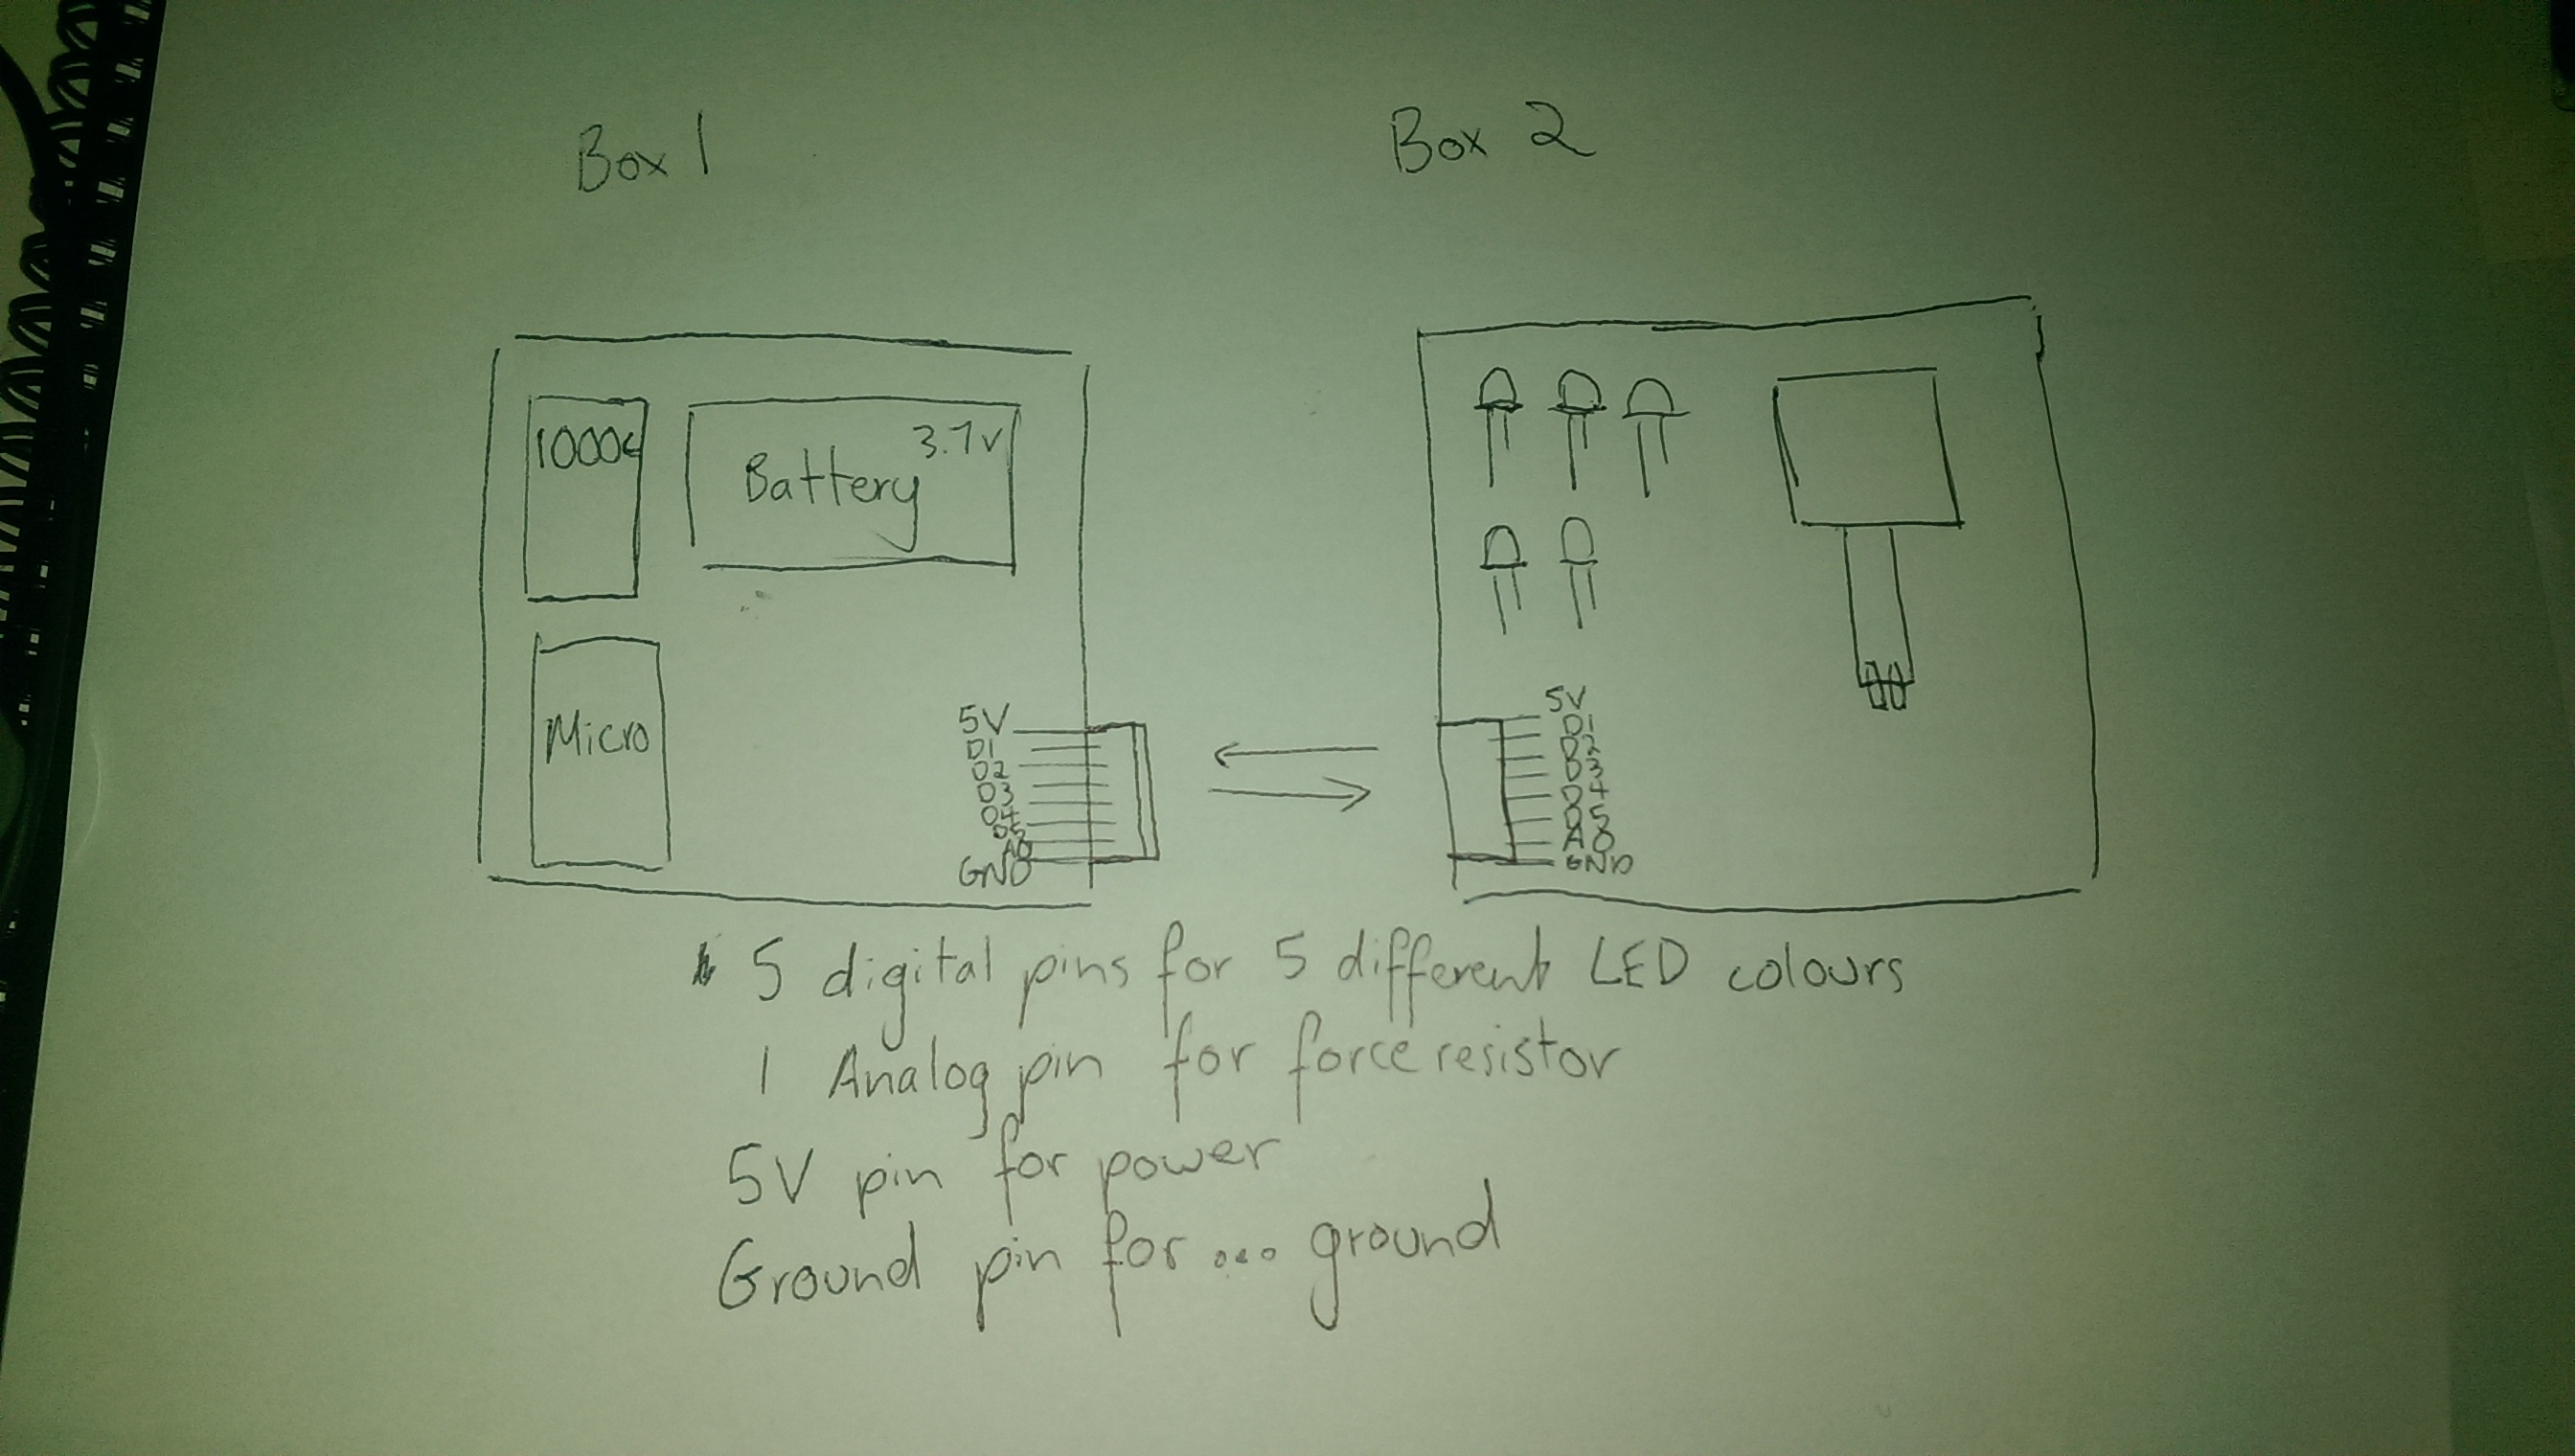 Box 1
Box 2
1000c
Battery 3.7v
Micro
5V
D1
D2
D3
D4
D5
A0
GND
5V
D1
D2
D3
D4
D5
A0
GND
5 digital pins for 5 different LED colours
1 Analog pin for force resistor
5V pin for power
Ground pin for... ground